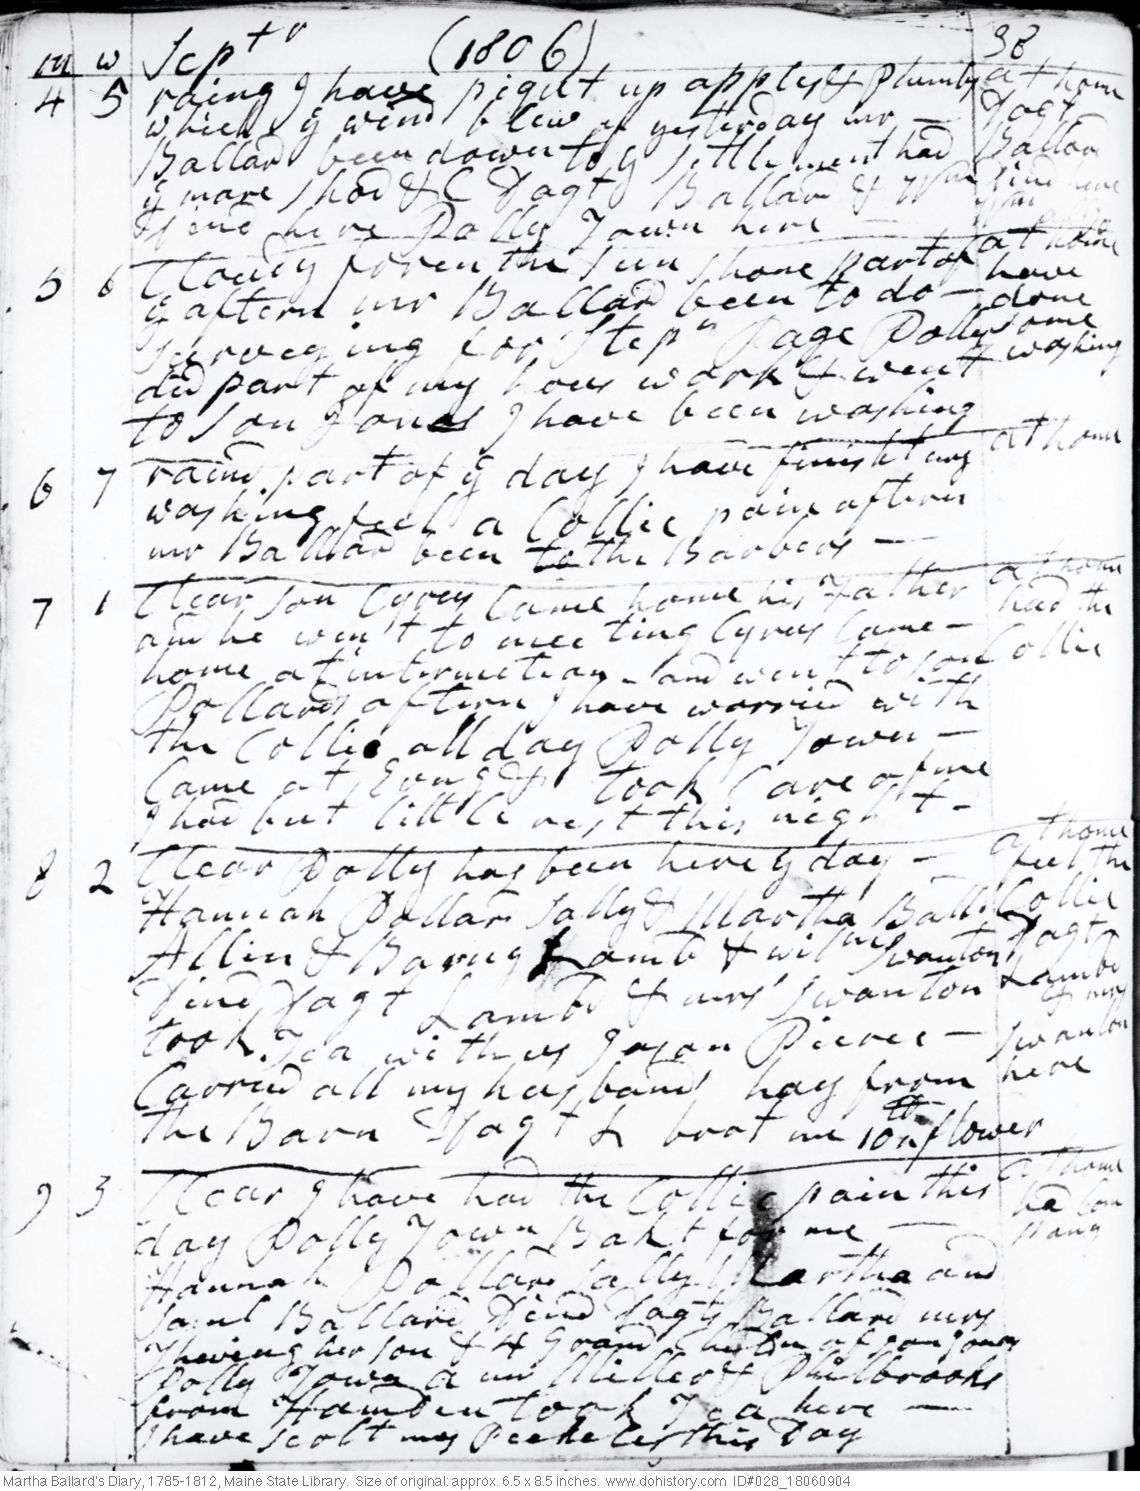 m w Sept r (1806) 38
4 5 raing I have piqut up apples & Plumbs at home
which ye wind blew of yesterday mr — Dagt
Ballard been down to ye settlement had Ballard
ye mare shod &C Dagt Ballard & Wm Dind here
Dind here Polly Town here — Wm allso
5 6 Clowdy foren the Sun shone part of at home
ye aftern mr Ballard been to do — have
surveying for Stepn Page Polly done some
did part of my hous work & went washing
to Son Jonas I have been washing
6 7 raind part of ye day I have finisht my at home
washing feel a Collic pain aftern
mr Ballard been to the Barbers —
7 1 Clear Son Cyrus Came home his Father at home
and he went to meeting Cyrus Came — had the
home at intermition and went to son Collic
Pollards aftern I have worried with
the Collic all day Polly Town —
Came at Evng & took Care of me
I had but little rest this night -
8 2 Clear Polly has been here ye day — at home
Hannah Pollard Sally & Martha Balld feel the Collic
Allin & Barny Lamb & wilm Swanton Dagt
Dind Dagt Lambd & mrs Swanton Lambd & mrs
took Tea with us Jason Pierce — Swanton
Carried all my husbands hay from here
the Barn Dagt L brot me 10 lb flower
9 3 Clear I have had the Collic pain this at home
day Polly Town Bakt for me —
Hannah Pollard Sally Martha and
Saml Ballard Dind Dagt Ballard mrs
Thwing her son & 4 Grand Childn of son Jonas
Polly Town a mr Miller & Philbrooks
from Hamden took Tea here —
I have scolt my Peekeles this Day
Martha Ballard's Diary, 1785-1812, Maine State Library. Size of original: approx. 6.5 x 8.5 inches. www.dohistory.com ID#028_18060904